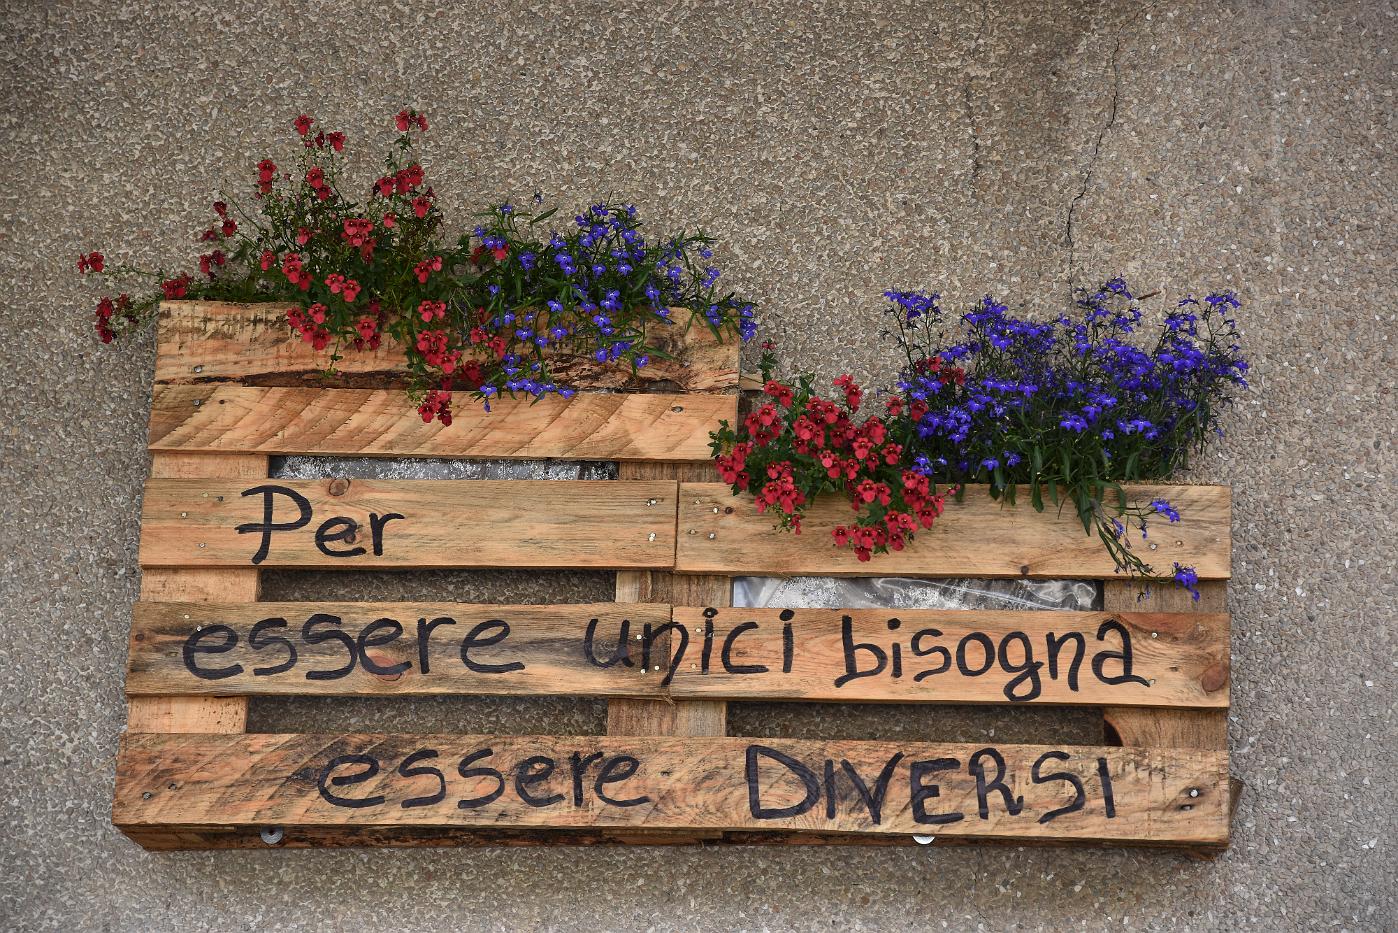 Per
essere unici bisogna
essere DIVERSI